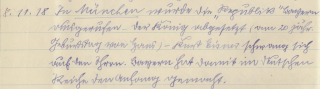 8. 11. 18. In München wurde die „Republik" Bayern
ausgerufen. Der König abgesetzt (am 20 jähr.
Geburtstag von ) – Kurt Eisner schwang sich
auf den Thron. Bayern hat damit im deutschen
Reiche den Anfang gemacht.